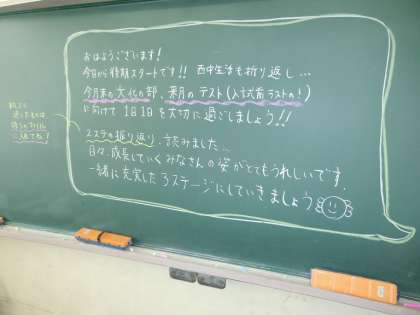 おはようございます!
今日から後期スタートです!! 西中生活も折り返し...
今月末の文化の部、来月のテスト(入試前ラストの!)
に向けて1日1日を大切に過ごしましょう!!
2ステの振り返り、読みました...
日々、成長していくみなさんの姿がとてもうれしいです。
一緒に充実した3ステージにしていきましょう